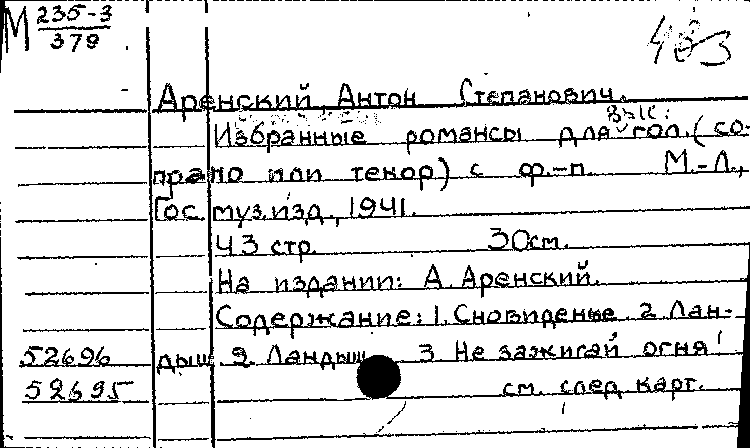 М 235-3
379
403
Аренский, Антон Степанович.
выс.
Избранные романсы для гол. (со-
прано или тенор) с ф.-п. М.-Л.,
Гос. муз. изд., 1941.
43 стр. 30см.
На издании: А. Аренский.
Содержание: 1. Сновиденье. 2 Лан-
52696 дыш. 2. Ландыш 3. Не зажигай огня!
52695 см. след. карт.